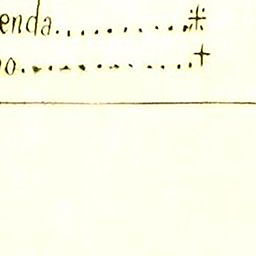 enda...........⁜
o..............†